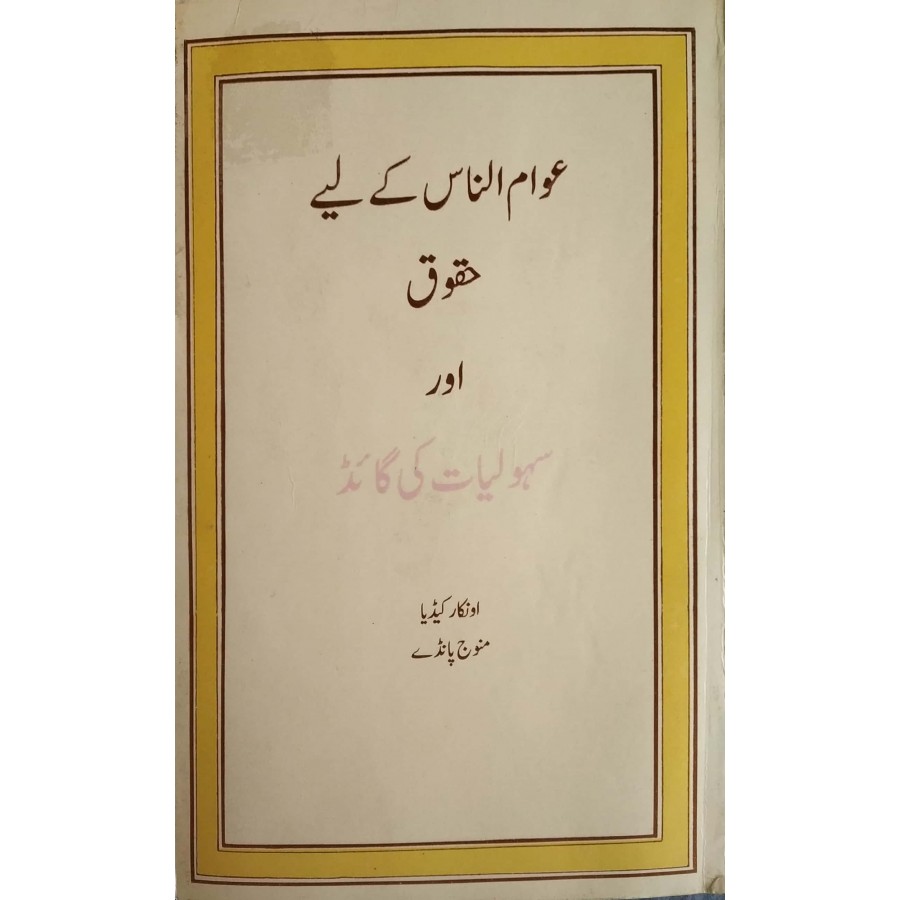 عوام الناس کے لیے
حقوق
اور
سہولیات کی گائڈ
اونکار کیڈیا
منوج پانڈے